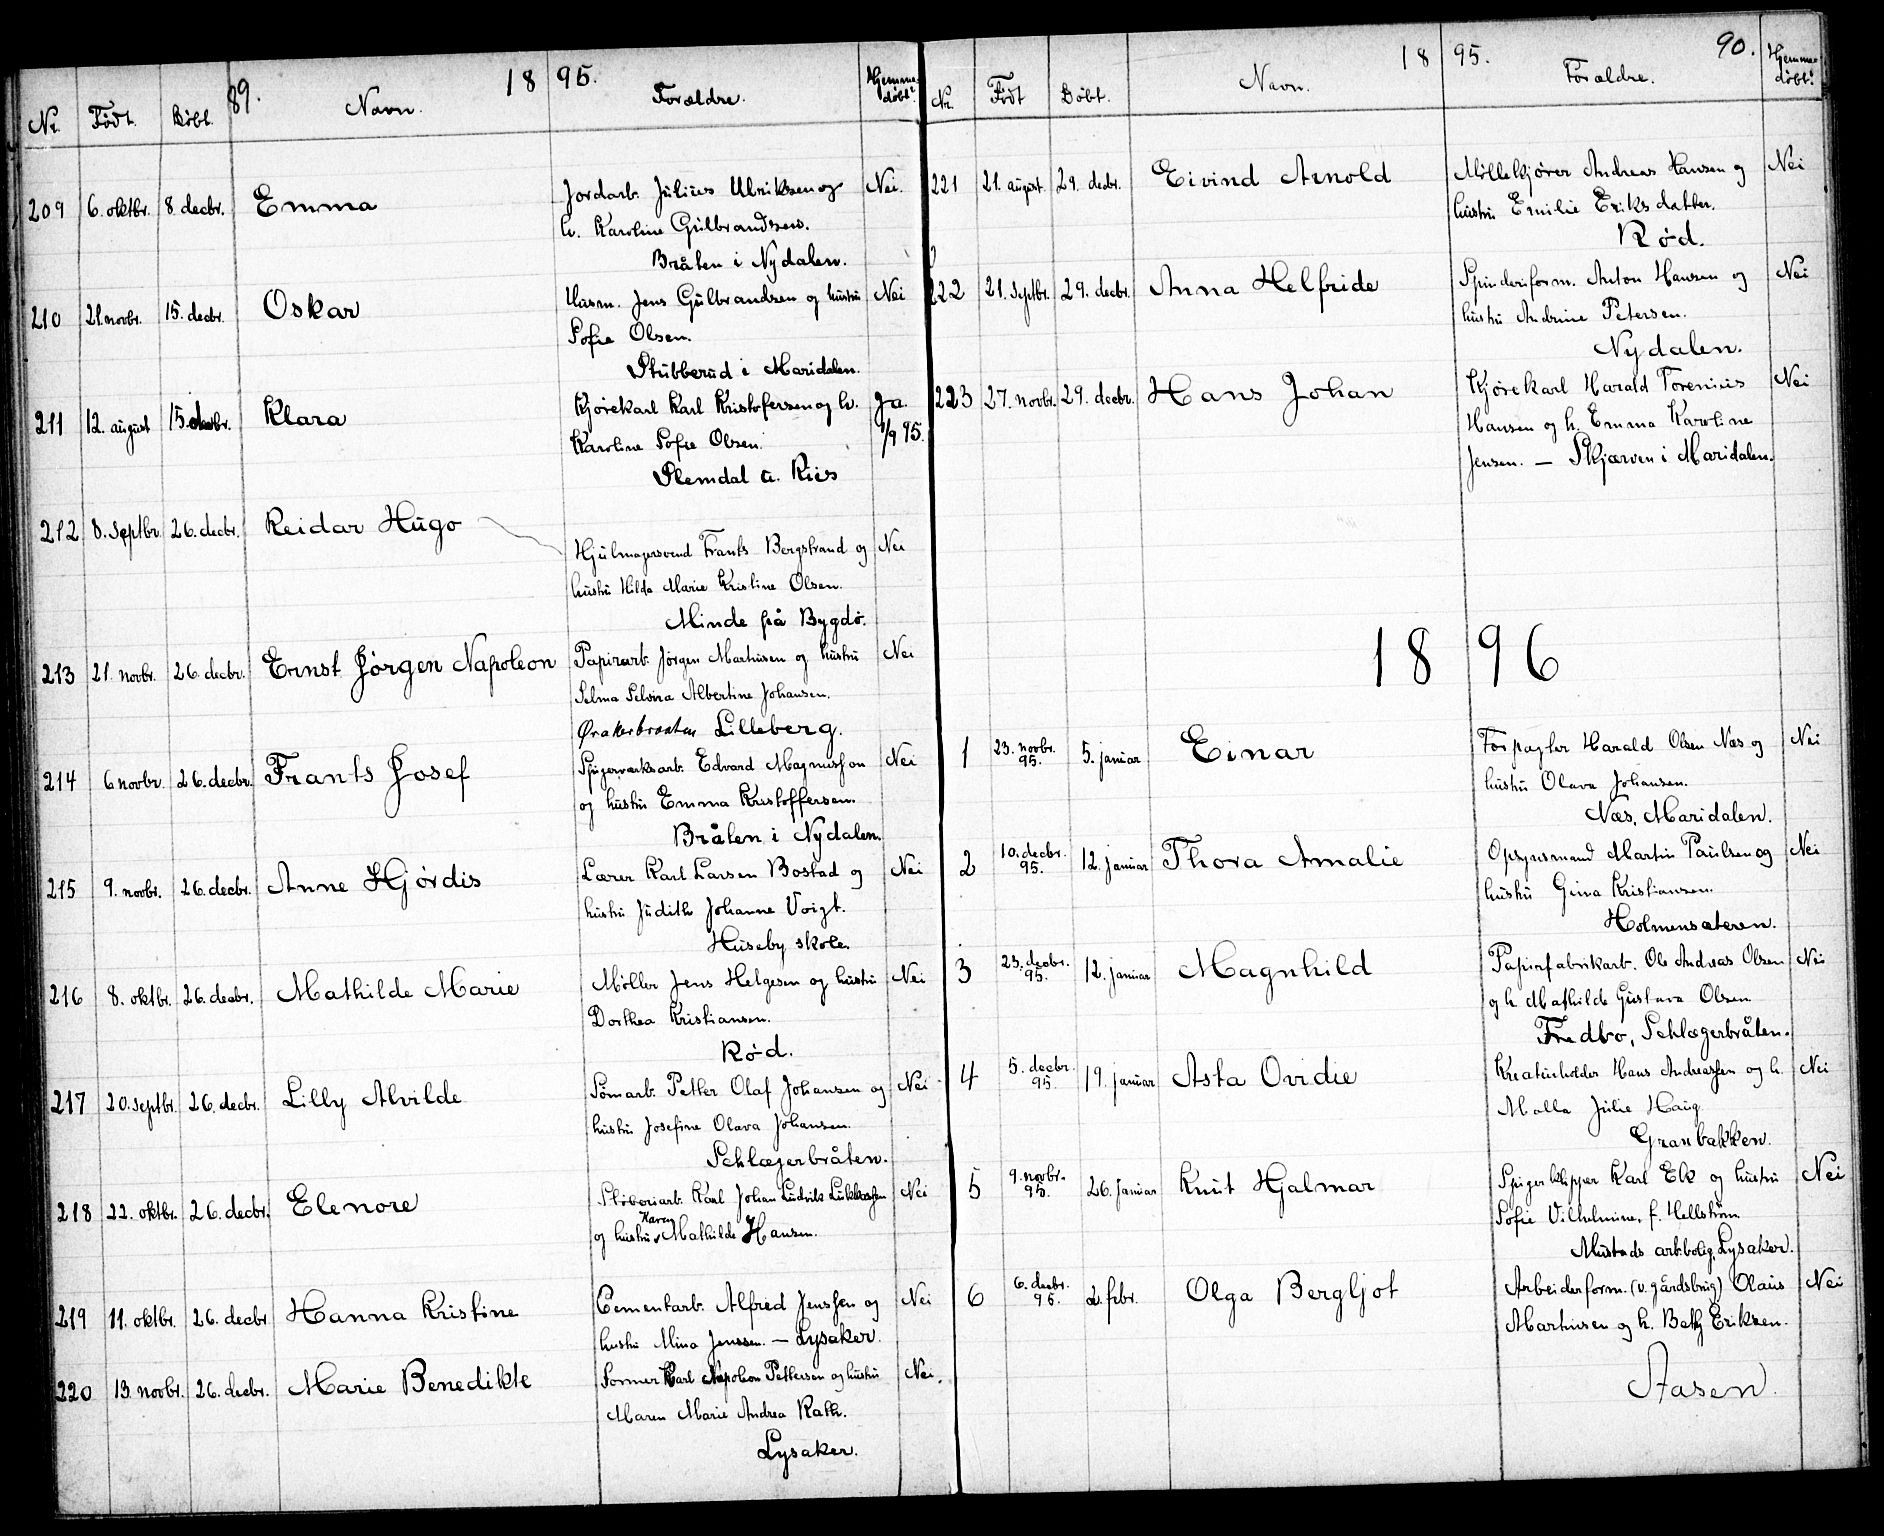 89.
18 95.
Nr. Født. Døbt. Navn. Forældre. Hjemme-
døbt?
209 6. oktbr. 8. decbr. Emma Jordarb. Julius Ulriksen og Nei.
h. Karoline Gulbrandsen.
Bråten i Nydalen.
210 21. novbr. 15. decbr. Oskar Husm. Jens Gulbrandsen og hustru Nei
Sofie Olsen.
Stubberud i Maridalen.
211 12. august 15. decbr. Klara Kjørekarl Karl Kristofersen og h. Ja.
Karoline Sofie Olsen. 1/9 95.
Slemdal u. Riis
212 8. septbr. 26. decbr. Reidar Hugo
Hjulmagersvend Frants Bergstrand og Nei
hustru Hilda Marie Kristine Olsen.
Minde på Bygdö.
213 21. novbr. 26. decbr. Ernst Jørgen Napoleon Papirarb. Jørgen Martinsen og hustru Nei
Selma Selvira Albertine Johansen.
Ørakerbraaten Lilleberg.
214 6 novbr. 26. decbr. Frants Josef Spigerverksarb. Edvard Magnussson Nei
og hustru Emma Kristoffersen.
Bråten i Nydalen.
215 9. novbr. 26. decbr. Anne Hjørdis Lærer Karl Larsen Bostad og Nei
hustru Judith Johanne Voigt.
Huseby skole.
216 8. oktbr. 26. decbr. Mathilde Marie Møller Jens Helgesen og hustru Nei
Dorthea Kristiansen.
Rød.
217 20. septbr. 26. decbr. Lilly Alvilde Sømarb. Petter Olaf Johansen og Nei
hustru Josefine Olava Johansen.
Schlægerbråten.
218 22. oktbr. 26. decbr. Elenore Karl Johan Ludvik Lukkassen Nei
Karen
og hustru Mathilde Hansen.
219 11. oktbr. 26. decbr Hanna Kristine Cementarb. Alfred Jenssen og Nei
hustru Mina Jenssen. — Lysaker.
220 13. novbr. 26. decbr. Marie Benedikte Former Karl Napoleon Pettersen og hustru Nei.
Maren Marie Andrea Rath.
Lysaker.
18 95.
90.
Nr. Født Døbt. Navn. Forældre. Hjemme-
døbt?
221 21. august. 29. decbr. Eivind Arnold Møllekjører Andreas Hansen og Nei
hustru Emilie Eriksdatter.
Rød.
222 21. septbr. 29. decbr. Anna Helfride Spinderiform. Anton Hansen og Nei
hustru Andrine Petersen.
Nydalen.
223 27. novbr. 29. decbr. Hans Johan Kjørekarl Harald Torenius Nei
Hansen og h. Emma Karoline
Jensen. — Skjærven i Maridalen.
18 96
1 23. novbr. 95. 5. januar Einar Forpagter Harald Olsen Næs og Nei
hustru Olava Johansen.
Næs, Maridalen.
2 10. decbr. 95. 12. januar Thora Amalie Opsynsmand Martin Paulsen og Nei
hustru Gina Kristiansen.
Holmensæteren.
3 23. decbr. 95. 12. januar Magnhild Papirfabrikarb. Ole Andreas Olsen Nei
og h. Mathilde Gustava Olsen
Fredbo, Schlægerbråten.
4 5. decbr. 95. 19. januar Asta Ovidie Kreaturholder Hans Andreassen og h. Nei
Malla Julie Haug
Granbakken.
5 9. novbr. 95. 26. januar Knut Hjalmar Spigerklipper Karl Ek og hustru Nei
Sofie Vilhelmine, f. Hellström
Mustads arb.bolig, Lysaker.
6 6. decbr. 95. 2. febr. Olga Bergljot Arbeiderform. (v. gårdsbrug) Olaus Nei
Martinsen og h. Eriksen.
Aasen.